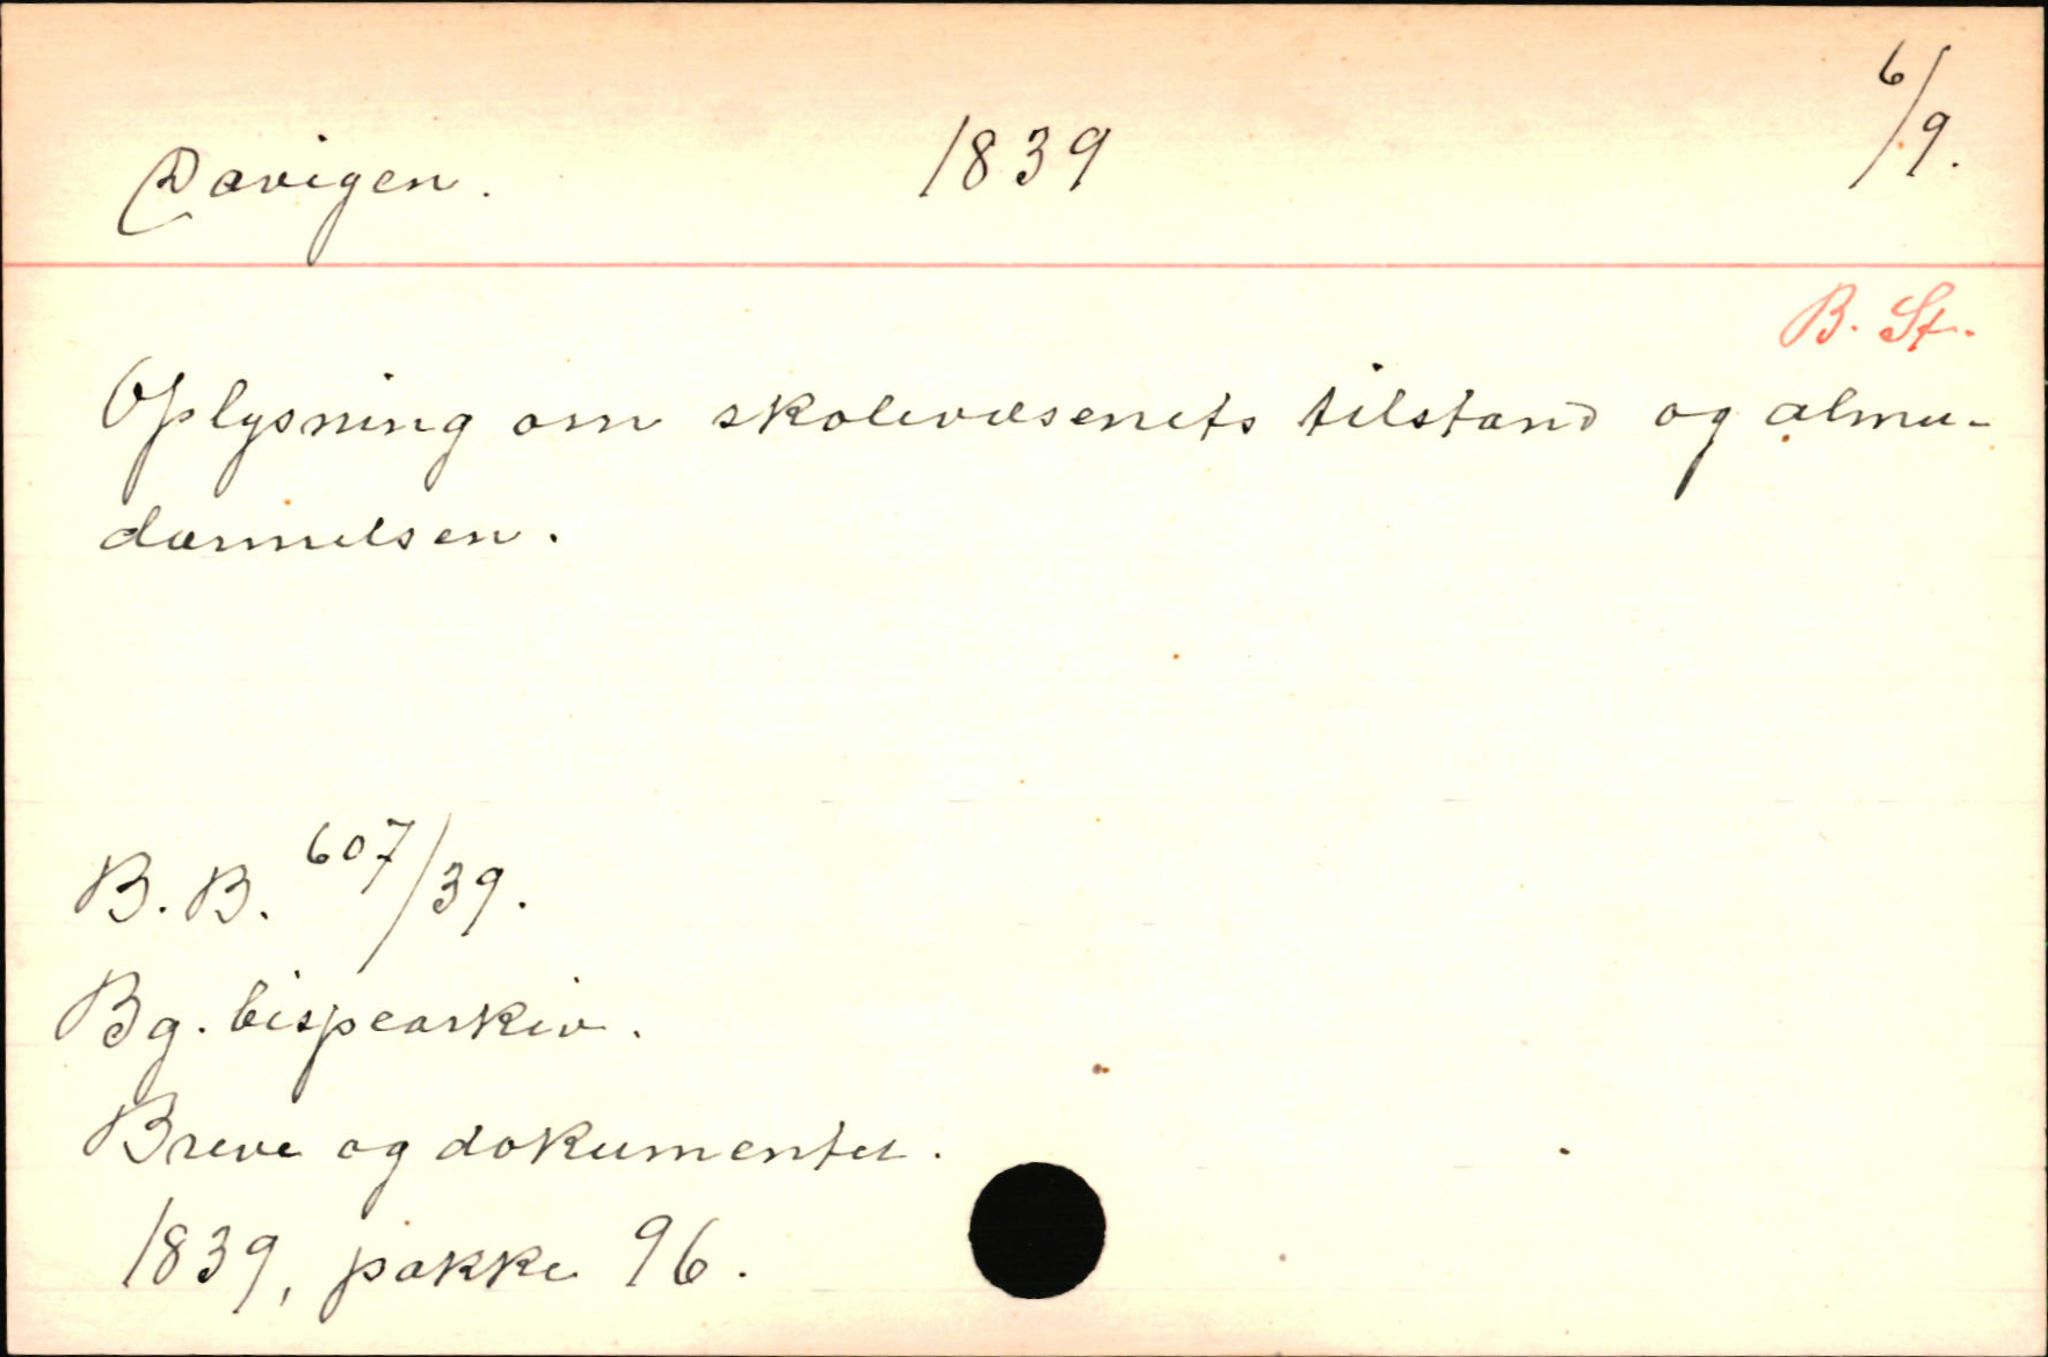 Davigen. 1839 6/9.
B. St.
Oplysning om skolevæsenets tilstand og almu-
dannelsen.
B. B. 607/39.
Bg. bispearkiv.
Breve og dokumenter.
1839, pakke 96.